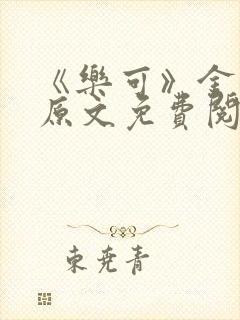 《樂可》金
原文免費閱
東堯青